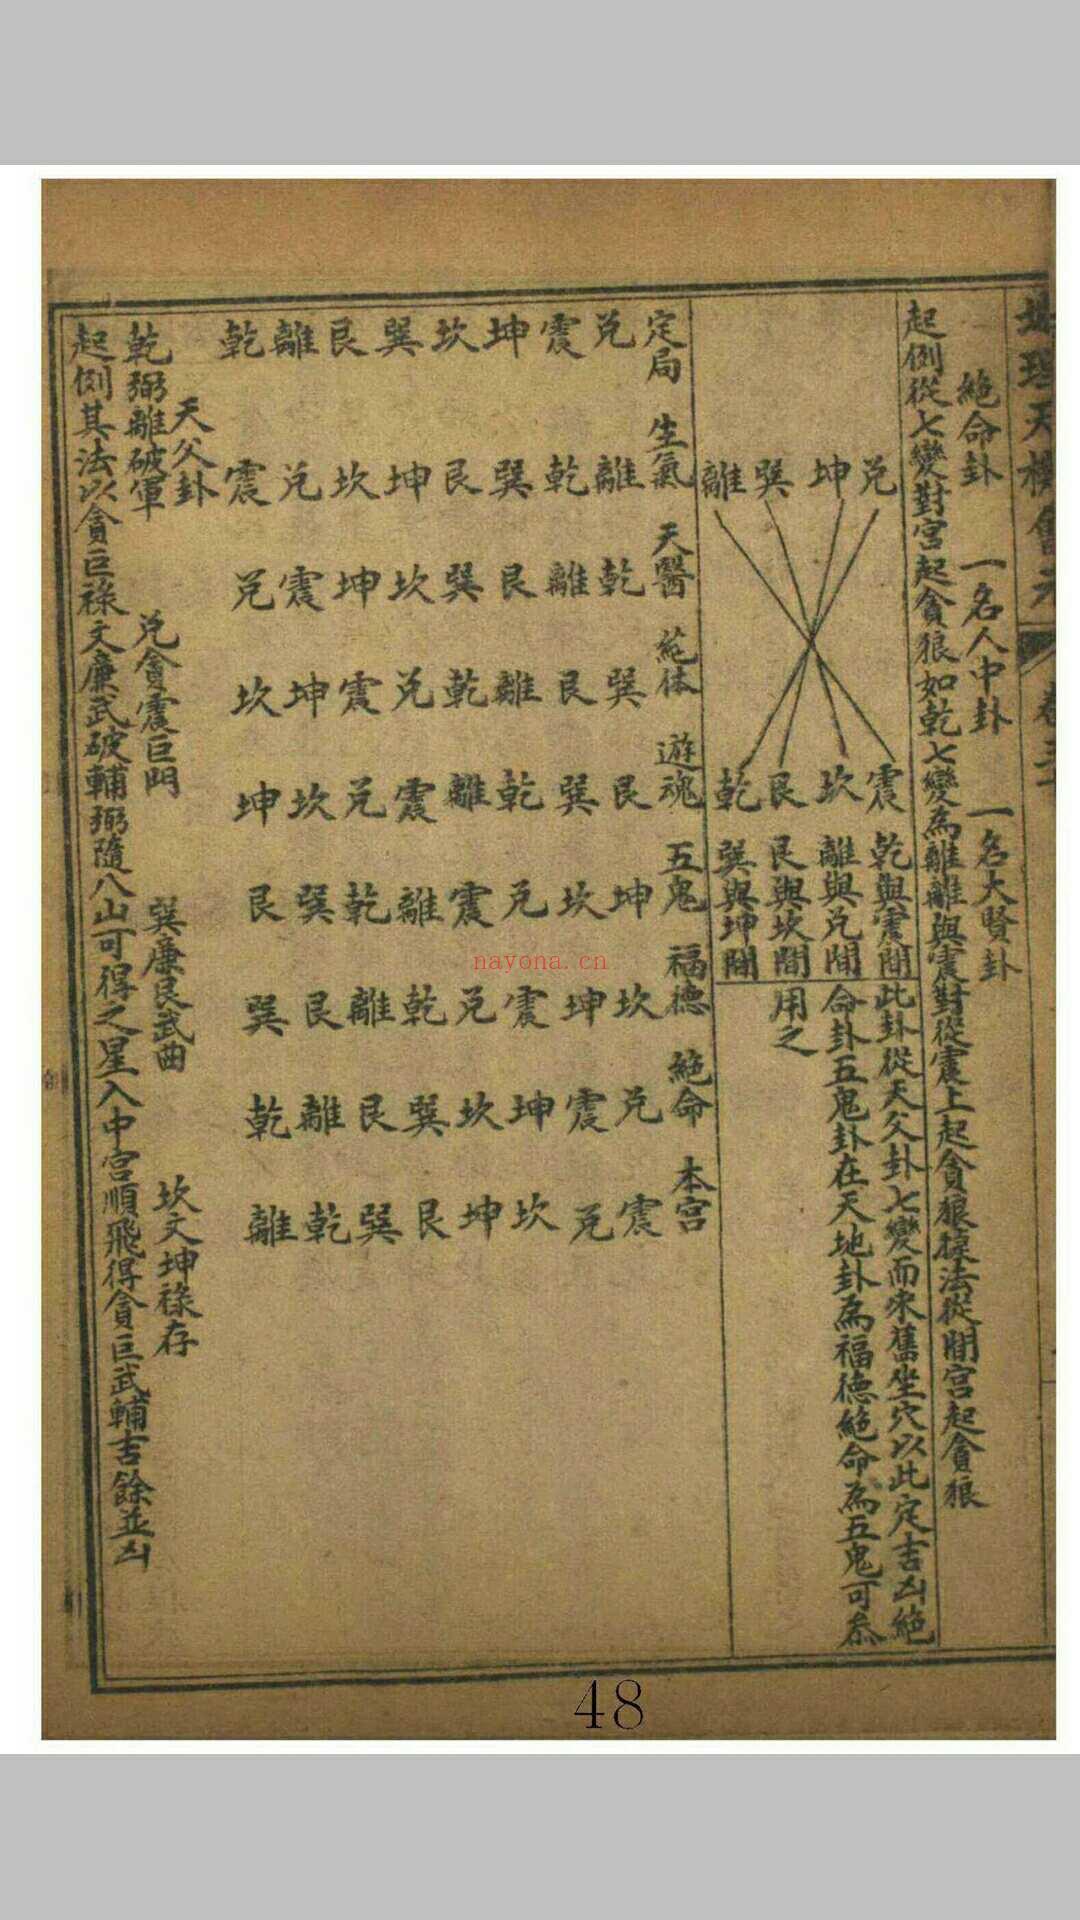 地理天機會元
絕命卦 一名人中卦 一名大賢卦
起例從七變對宮起貪狼如乾七變為離離與震對從震上起貪狼掾法從間宮起貪狼
兑 坤 巽 離
震 坎 艮 乾
乾與震間
離與兑間
艮與坎間
巽與坤間
此卦從天父卦七變而來舊坐穴以此定吉凶絕
命卦五鬼卦在天地卦為福德絕命為五鬼可叅
用之
定局 生氣 天醫 絕体 遊魂 五鬼 福德 絕命 本宮
兑 離 乾 巽 艮 坤 坎 兑 震
震 乾 離 艮 巽 坎 坤 震 兑
坤 巽 艮 離 乾 兑 震 坤 坎
坎 艮 巽 乾 離 震 兑 坎 坤
巽 坤 坎 兑 震 離 乾 巽 艮
艮 坎 坤 震 兑 乾 離 艮 巽
離 兑 震 坤 坎 巽 艮 離 乾
乾 震 兑 坎 坤 艮 巽 乾 離
天父卦
乾弼離破軍 兑貪震巨門 巽廉艮武曲 坎文坤祿存
起例其法以貪巨祿文廉武破輔弼隨八山可得之星入中宮順飛得貪巨武輔吉餘並凶
nayona.cn
48